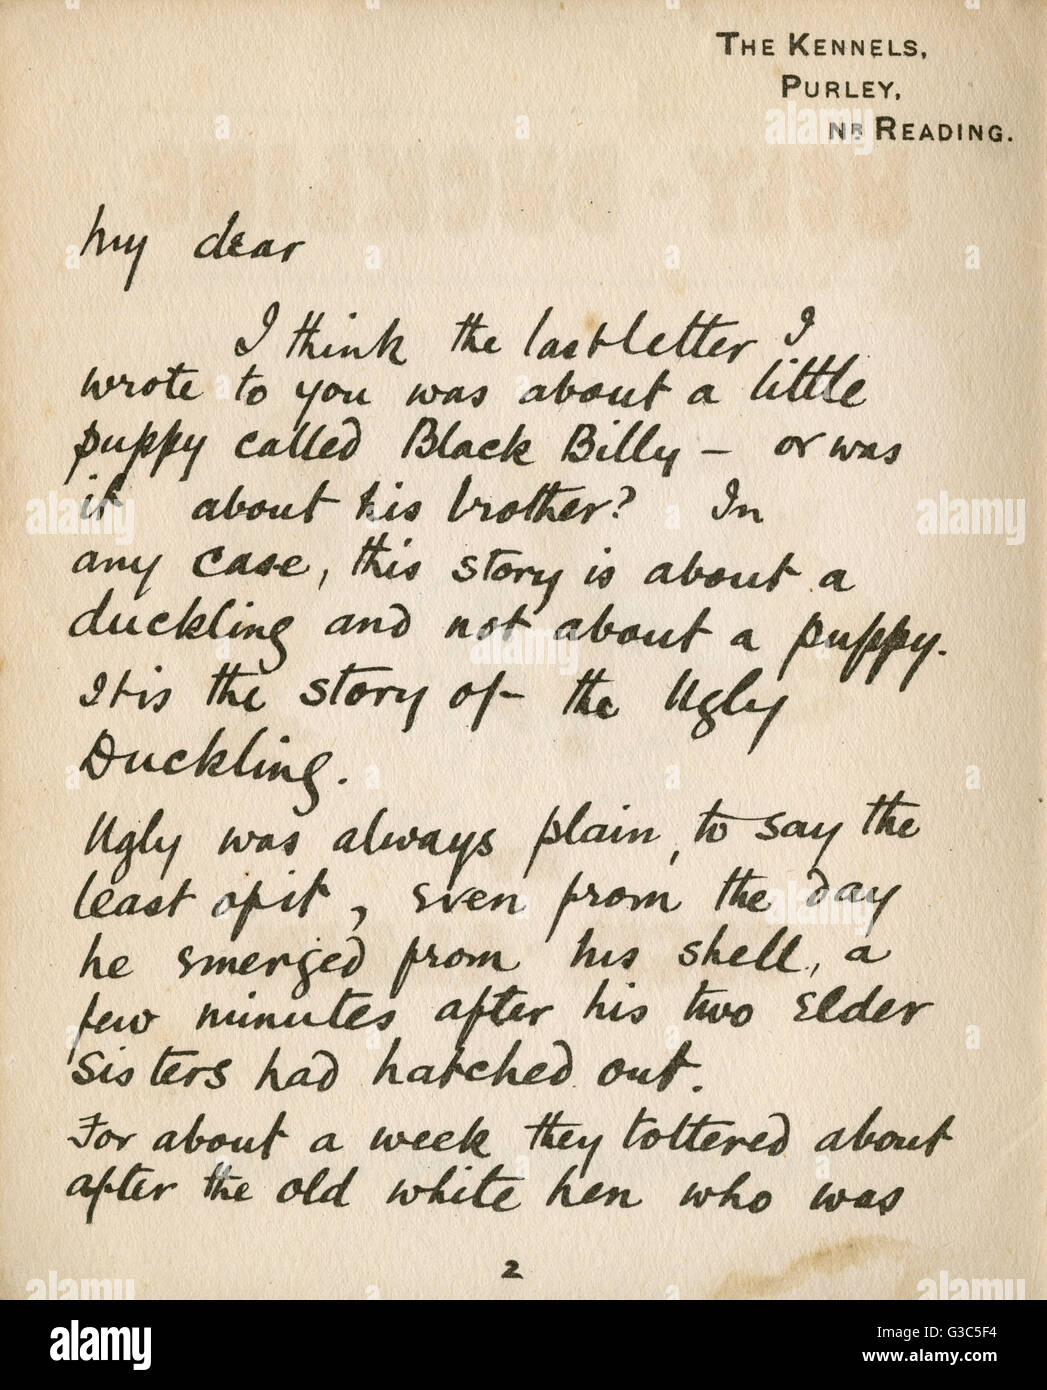 THE KENNELS,
PURLEY,
NR READING.
My dear
I think the last letter I
wrote to you was about a little
puppy called Black Billy – or was
it about his brother? In
any case, this story is about a
duckling and not about a puppy.
It is the story of the Ugly
Duckling.
Ugly was always plain, to say the
least of it, even from the day
he emerged from his shell, a
few minutes after his two elder
sisters had hatched out.
For about a week they tottered about
after the old white hen who was
2
alamy
Image ID: G3C5F4
www.alamy.com